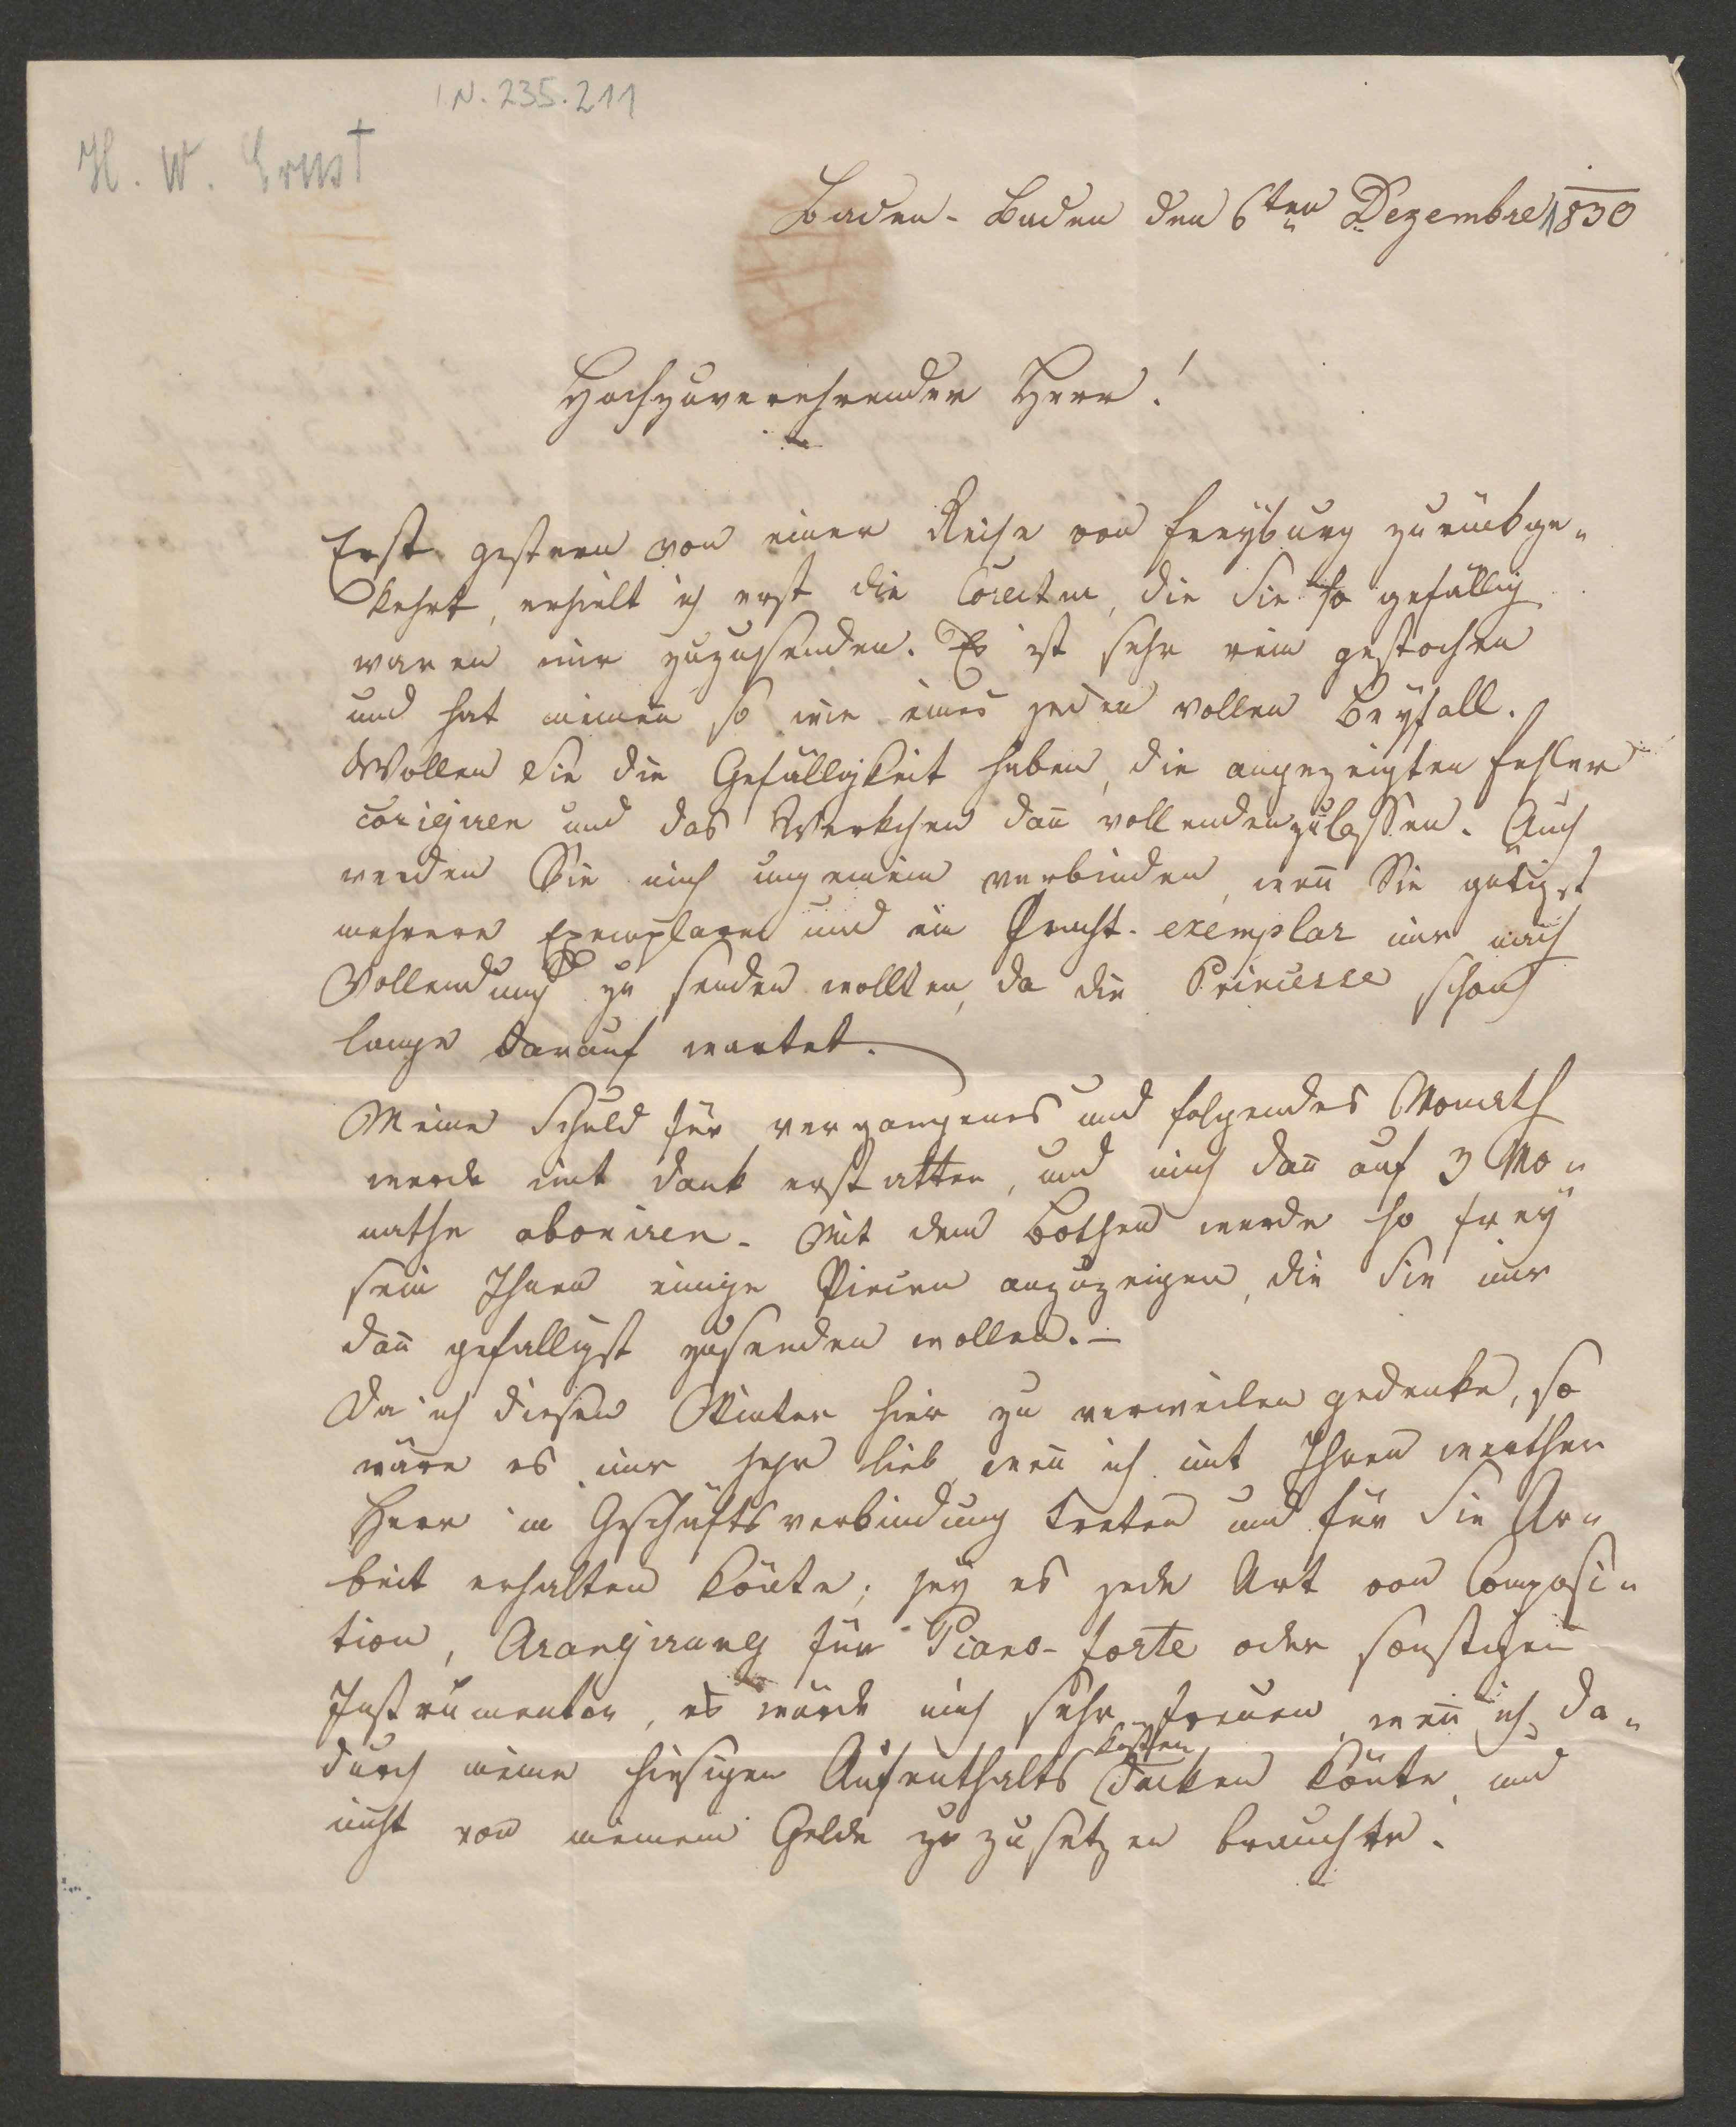 I.N. 235.211
H. W. Ernst
Baden-Baden den 6ten Dezembre 1830
Hochzuverehrender Herr!
Erst gestern von einer Reise von Freyburg zurückge-
kehrt, erhielt ich erst die Corectur, die Sie so gefällig
waren mir zuzusenden. Es ist sehr rein gestochen
und hat meinen so wie eines jeden vollen Beyfall.
Wollen Sie die Gefälligkeit haben, die angezeigten Fehler
corigiren und das Werkchen dañ vollenden zu lassen. Auch
werden Sie mich ungemein verbinden, weñ Sie gütigst
mehrere Exemplare und ein Pracht-exemplar mir nach
Vollendung zu senden wollten, da die Princesse schon
lange darauf wartet.
Meine Schuld für vergangenes und folgendes Monath
werde mit Dank erstatten, und mich dañ auf 3 Mo-
nathe aboniren. Mit dem Bothen werde so frey
sein Ihnen einige Piecen anzuzeigen, die Sie mir
dañ gefälligst zusenden wollen. –
Da ich diesen Winter hier zu verweilen gedenke, so
wäre es mir sehr lieb weñ ich mit Ihnen werther
Herr in Geschäftsverbindung tretten und für Sie Ar-
beit erhalten köñte; sey es jede Art von Composi-
tion, Arangirung für Piano-forte oder sonstigen
Instrumenten, es würde mich sehr freuen, weñ ich da-
durch meine hiesigen Aufenthalts kosten decken köñte, und
nicht von meinem Gelde zu zusetzen brauchte.